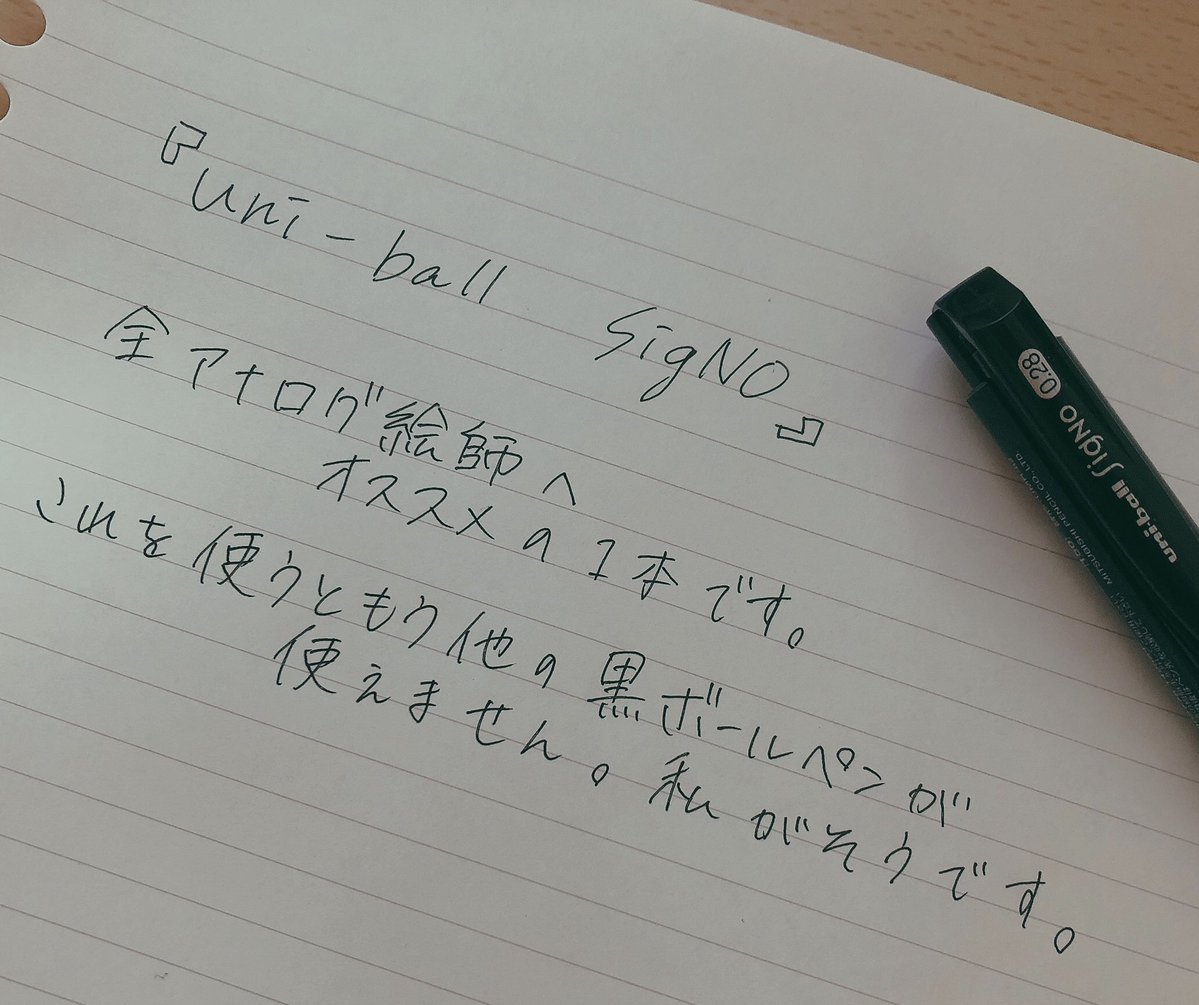 『uni-ball SigNO』
全アナログ絵師へ
オススメの1本です。
これを使うともう他の黒ボールペンが
使えません。私がそうです。
0.28
uni-ball SigNO
MITSUBISHI PENCIL CO., LTD.